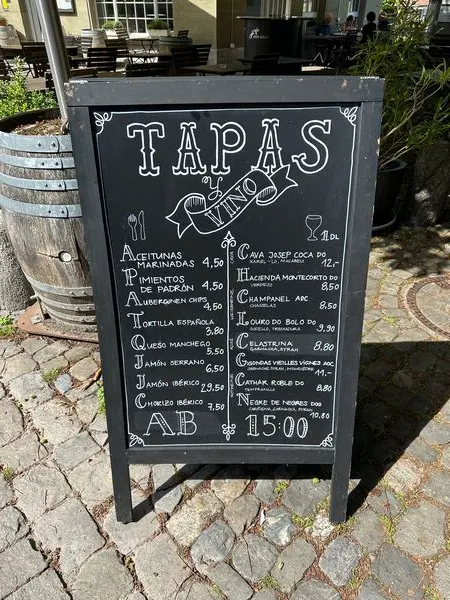 TAPAS
y
VINO
1 DL
ACEITUNAS
MARINADAS 4,50
PIMIENTOS
DE PADRÓN 4,50
AUBERGINEN CHIPS
4,50
TORTILLA ESPAÑOLA
3,80
QUESO MANCHEGO
5,50
JAMÓN SERRANO
6,50
JAMÓN IBÉRICO
29,50
CHORIZO IBÉRICO
7,50
CAVA JOSEP COCA DO
XAREL-LO, MACABEU 12,-
HACIENDA MONTECORTO DO
VERDEJO 8,50
CHAMPANEL AOC
CHASSELAS 8,50
LOURO DO BOLO DO
GODELLO, TREIXADURA 9,90
CELASTRINA
GARNACHA, SYRAH 8,80
GIGONDAS VIEILLES VIGNES AOC
GRENACHE, SYRAH, MOURVÈDRE 11.-
CATHAR ROBLE DO
TEMPRANILLO 8,80
NEGRE DE NEGRES DOQ
CARIÑENA, GARNACHA, SYRAH
10,80
AB 15:00